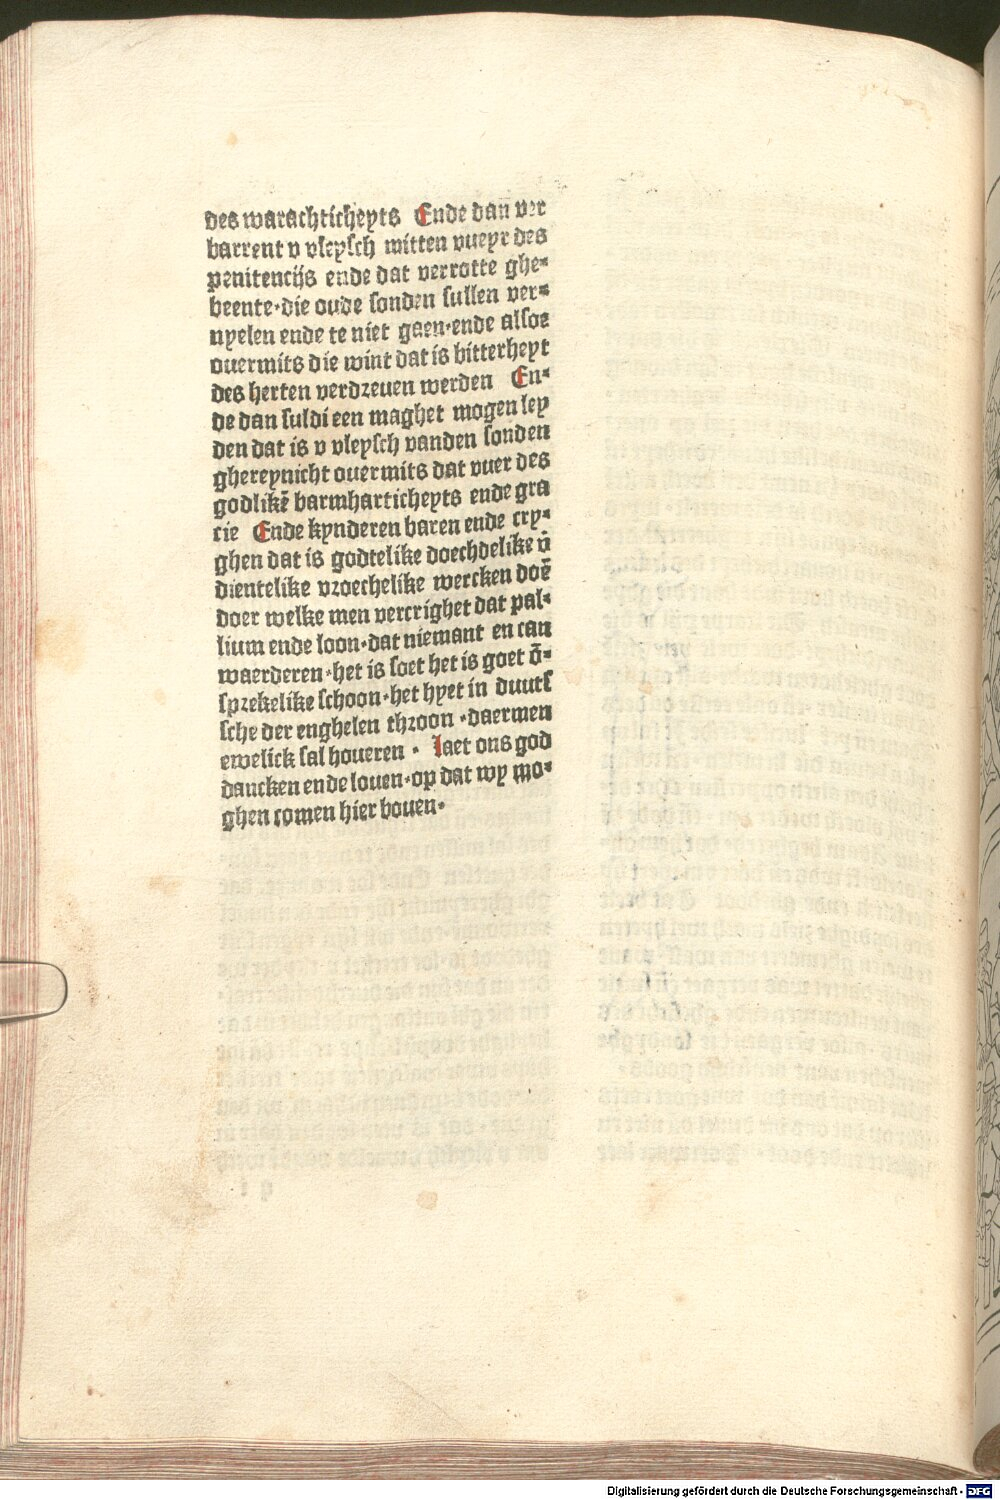 des warachticheyts Ende dan ver
barrent v vleysch mitten vueyr des
penitencijs ende dat verrotte ghe-
beente·die oude sonden sullen ver-
nyelen ende te niet gaen·ende alsoe
ouermits die wint dat is bitterheyt
des herten verdreuen werden En-
de dan suldi een maghet mogen ley
den dat is v vleysch vanden sonden
ghereynicht ouermits dat vuer des
godlikē barmharticheyts ende gra
cie Ende kynderen baren ende cry-
ghen dat is godtelike doechdelike v̄
dientelike vroechelike wercken doē
doer welke men vercrighet dat pal-
lium ende loon·dat niemant en can
waerderen·het is soet het is goet ō-
sprekelike schoon·het hyet in duuts
sche der enghelen throon·daermen
ewelick sal houeren· Laet ons god
dancken ende louen·op dat wy mo-
ghen comen hier bouen·
Digitalisierung gefördert durch die Deutsche Forschungsgemeinschaft - DFG